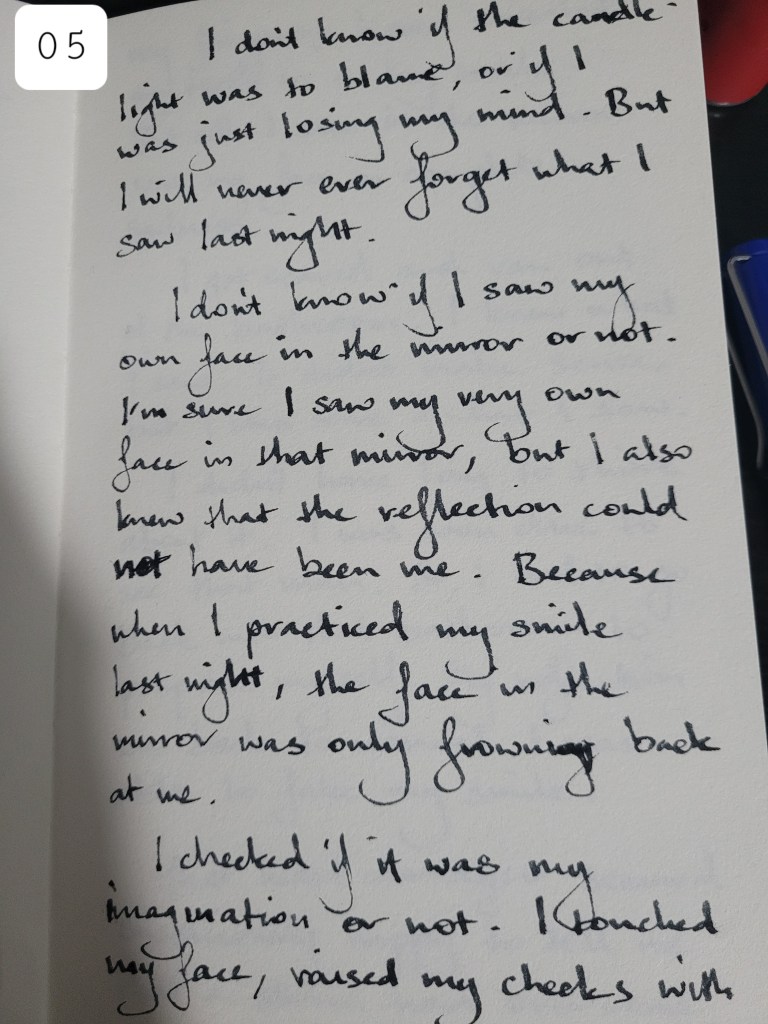 05
I don't know if the candle-
light was to blame, or if I
was just losing my mind. But
I will never ever forget what I
saw last night.
I don't know if I saw my
own face in the mirror or not.
I'm sure I saw my very own
face in that mirror, but I also
knew that the reflection could
not have been me. Because
when I practiced my smile
last night, the face in the
mirror was only frowning back
at me.
I checked if it was my
imagination or not. I touched
my face, raised my cheeks with